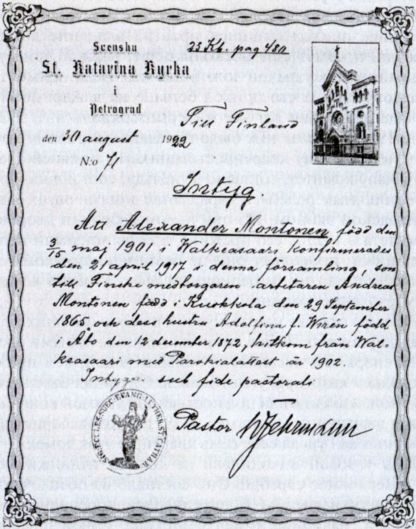 Svenska
St. Katarina Kyrka
i
Petrograd
den 30 august 1922
No 71
22 Kb. pag 480
Till Finland
Intyg
Att Alexander Montonen född den
3/15 maj 1901 i Walkeasaari, konfirmerad
den 21 april 1917 i denna församling, son
till Finske medborgaren arbetaren Andreas
Montonen född i Kuokkola den 29 September
1865 och dess hustru Adolfina f. Wirén född
i Åbo den 12 december 1872, hitkom från Wal-
keasaari med Parokialattest år 1902.
Intygar sub fide pastorali
Pastor